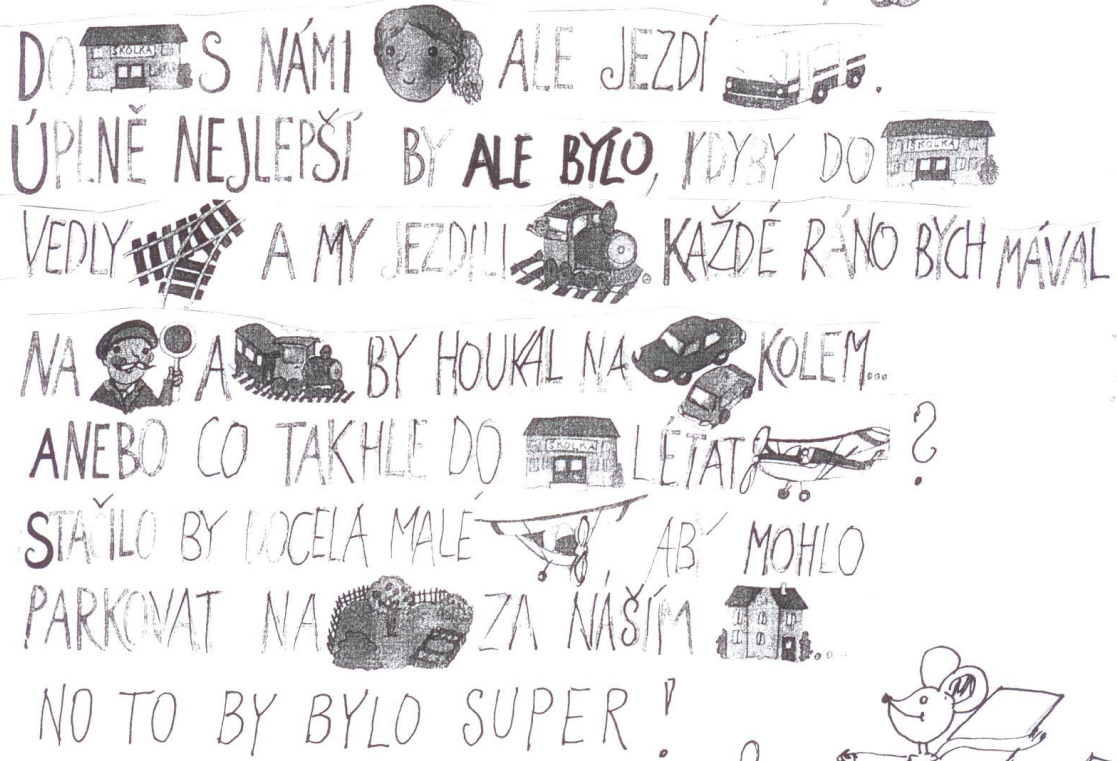 DO ŠKOLKA S NÁMI ALE JEZDÍ .
ÚPLNĚ NEJLEPŠÍ BY ALE BYLO, KDYBY DO ŠKOLKA
VEDLY A MY JEZDILI . KAŽDÉ RÁNO BYCH MÁVAL
NA A BY HOUKAL NA KOLEM...
ANEBO CO TAKHLE DO ŠKOLKA LÉTAT ?
STAČILO BY DOCELA MALÉ ABY MOHLO
PARKOVAT NA ZA NÁŠÍM ...
NO TO BY BYLO SUPER !